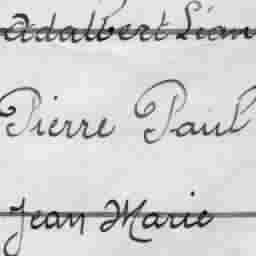 Adalbert Lian
Pierre Paul
Jean Marie